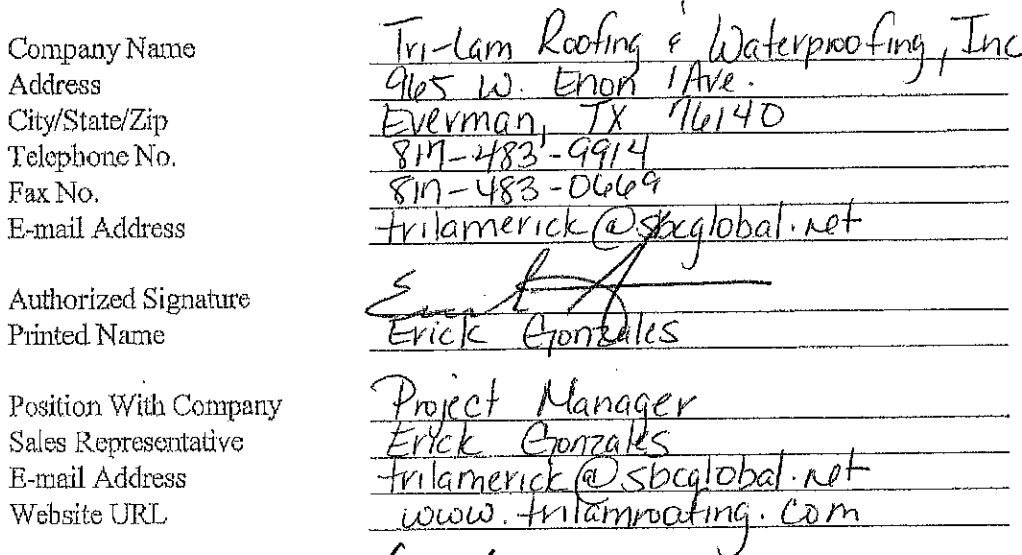 Company Name Tri-Lam Roofing & Waterproofing, Inc
Address 965 W. Enon Ave.
City/State/Zip Everman, TX 76140
Telephone No. 817-483-9914
Fax No. 817-483-0669
E-mail Address trilamerick@sbcglobal.net
Authorized Signature
Printed Name Erick Gonzales
Position With Company Project Manager
Sales Representative Erick Gonzales
E-mail Address trilamerick@sbcglobal.net
Website URL www.trilamroofing.com